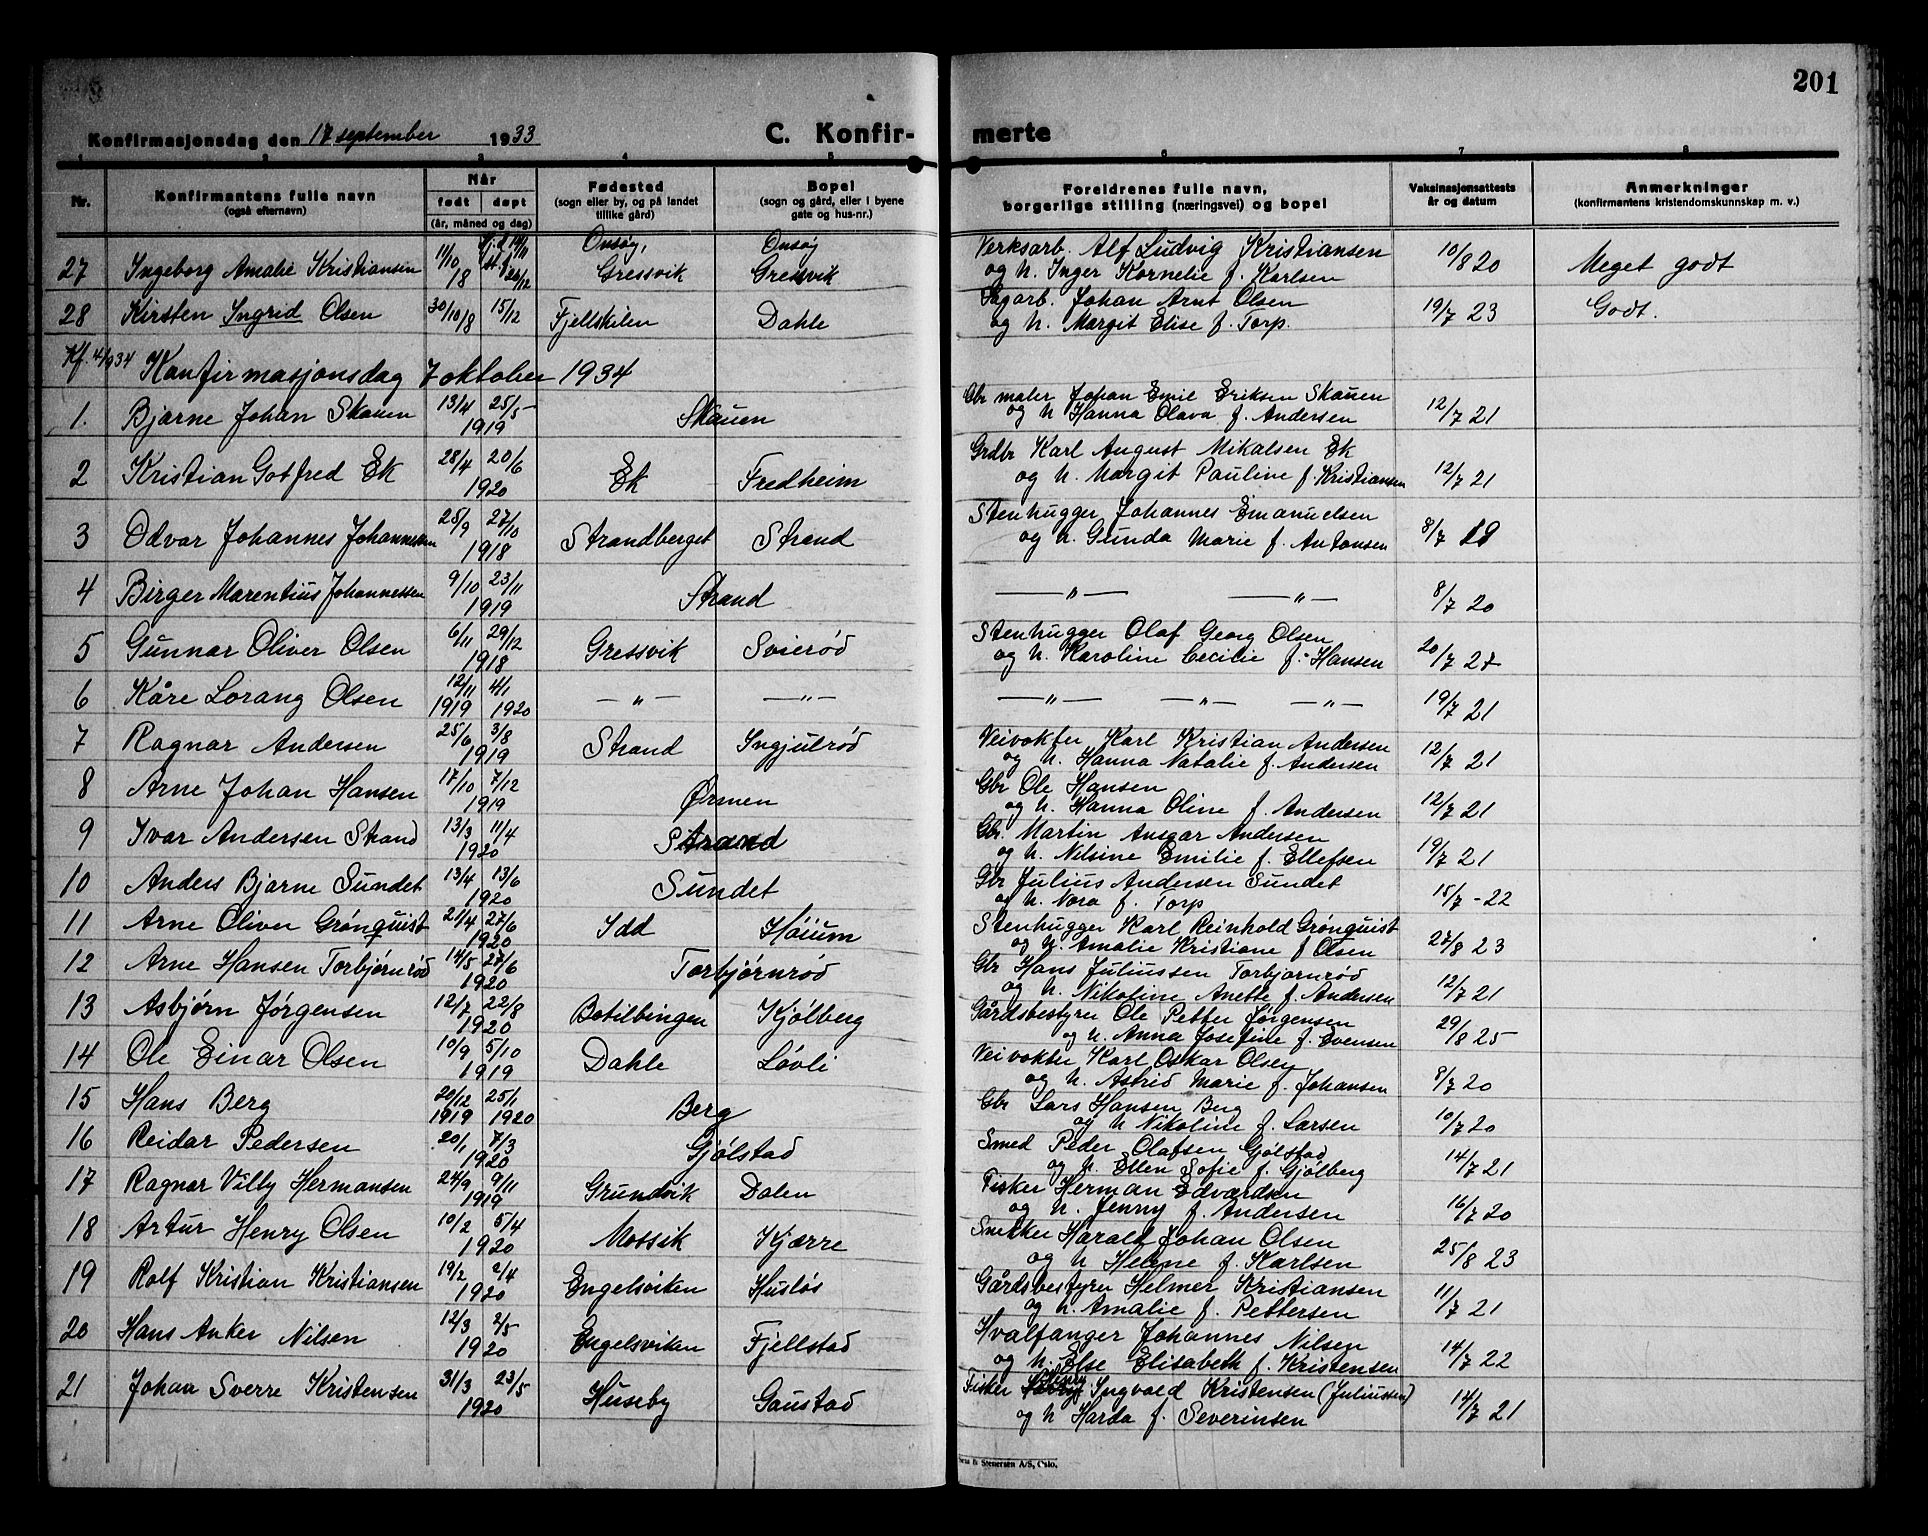 201
Konfirmasjonsdag den 17 september 1933 C. Konfir- merte
1 2 3 4 5 6 7 8
Nr. Konfirmantens fulle navn (også efternavn) Når født døpt (år, måned og dag) Fødested (sogn eller by, og på landet tillike gård) Bopel (sogn og gård, eller i byene gate og hus-nr.) Foreldrenes fulle navn, borgerlige stilling (næringsvei) og bopel Vaksinasjonsattests år og datum Anmerkninger (konfirmantens kristendomskunnskap m. v.)
27 Ingeborg Amalie Kristiansen 11/10 18 Onsøy, Gressvik Onsøy Gressvik Verksarb. Alf Ludvig Kristiansen 10/8 20 Meget godt
og h. Inger Kornelie f. Karlsen
28 Kirsten Ingrid Olsen 30/10 18 15/12 Fjellskilen Dahle Sagarb. Johan Arnt Olsen 19/7 23 Godt.
og h. Margit Elise f. Torp.
Kf. 4/934 Konfirmasjonsdag 7 oktober 1934
1. Bjarne Johan Skauen 13/4 25/5 1919 Skauen Gbr maler Johan Emil Eriksen Skauen 12/7 21
og h Hanna Olava f. Andersen
2 Kristian Gotfred Ek 28/4 20/6 1920 Ek Fredheim Grdbr Karl August Mikalsen Ek 12/7 21
og h. Margit Pauline f. Kristiansen
3 Odvar Johannes Johannessen 25/9 27/10 1918 Strandberget Strand Stenhugger Johannes Emanuelsen 8/7 19
og h. Gunda Marie f. Antonsen
4 Birger Marentius Johannessen 9/10 23/11 1919 Strand — " — — " — 8/7 20
5 Gunnar Oliver Olsen 6/11 29/12 1918 Gressvik Svierød Stenhugger Olaf Georg Olsen 20/7 27
og h. Karoline Cecilie f. Hansen
6 Kåre Lorang Olsen 12/11 1919 4/1 1920 — " — — " — — " — — " — — " — 19/7 21
7 Ragnar Andersen 25/6 3/8 1919 Strand Ingjulrød Veivokter Karl Kristian Andersen 12/7 21
og h. Hanna Natalie f. Andersen
8 Arne Johan Hansen 17/10 7/12 1919 Ørmen Gbr Ole Hansen 12/7 21
og h. Hanna Oline f. Andersen
9 Ivar Andersen Strand 13/3 11/4 1920 Strand Gbr. Martin Ansgar Andersen 19/7 21
og h. Nilsine Emilie f. Ellefsen
10 Anders Bjarne Sundet 13/4 13/6 1920 Sundet Gbr Julius Andersen Sundet 15/7 - 22
og h. Nora f. Torp
11 Arne Oliver Grønquist 21/4 27/6 1920 Idd Høium Stenhugger Karl Reinhold Grønquist 27/8 23
og h. Amalie Kristiane f Olsen
12 Arne Hansen Torbjørnrød 14/5 27/6 1920 Torbjørnrød Gbr Hans Juliussen Torbjørnrød 12/7 21
og h. Nikoline Anette f. Andersen
13 Asbjørn Jørgensen 12/7 22/8 1920 Botilbingen Kjølberg Gårdsbestyrer Ole Petter Jørgensen 29/8 25
og h. Anna Josefine f. Evensen
14 Ole Einar Olsen 10/9 5/10 1919 Dahle Løvli Veivokter Karl Oskar Olsen 8/7 20
og h. Astrid Marie f. Johansen
15 Hans Berg 20/12 1919 25/1 1920 Berg Gbr Lars Hansen Berg 10/7 20
og h Nikoline f. Larsen
16 Reidar Pedersen 20/1 7/3 1920 Gjølstad Smed Peder Olafsen Gjølstad 14/7 21
og h. Ellen Sofie f. Gjølberg
17 Ragnar Villy Hermansen 24/9 9/11 1919 Grundvik Dalen Fisker Herman Edvardsen 16/7 20
og h. Jenny f. Andersen
18 Artur Henry Olsen 10/2 5/4 1920 Mossik Kjærre Snekker Harald Johan Olsen 25/8 23
og h Helene f. Karlsen
19 Rolf Kristian Kristiansen 19/2 2/4 1920 Engelsviken Husløs Gårdsbestyrer Helmer Kristiansen 11/7 21
og h. Amalie f. Pettersen
20 Hans Anker Nilsen 12/3 2/5 1920 Engelsviken Fjellstad Hvalfanger Johannes Nilsen 14/7 22
og h. Else Elisabeth f. Kristensen
21 Johan Sverre Kristensen 31/3 23/5 1920 Huseby Gaustad Fisker Ingvald Kristensen (Juliussen) 14/7 21
og h Harda f. Severinsen
Stenersen A/S, Oslo.